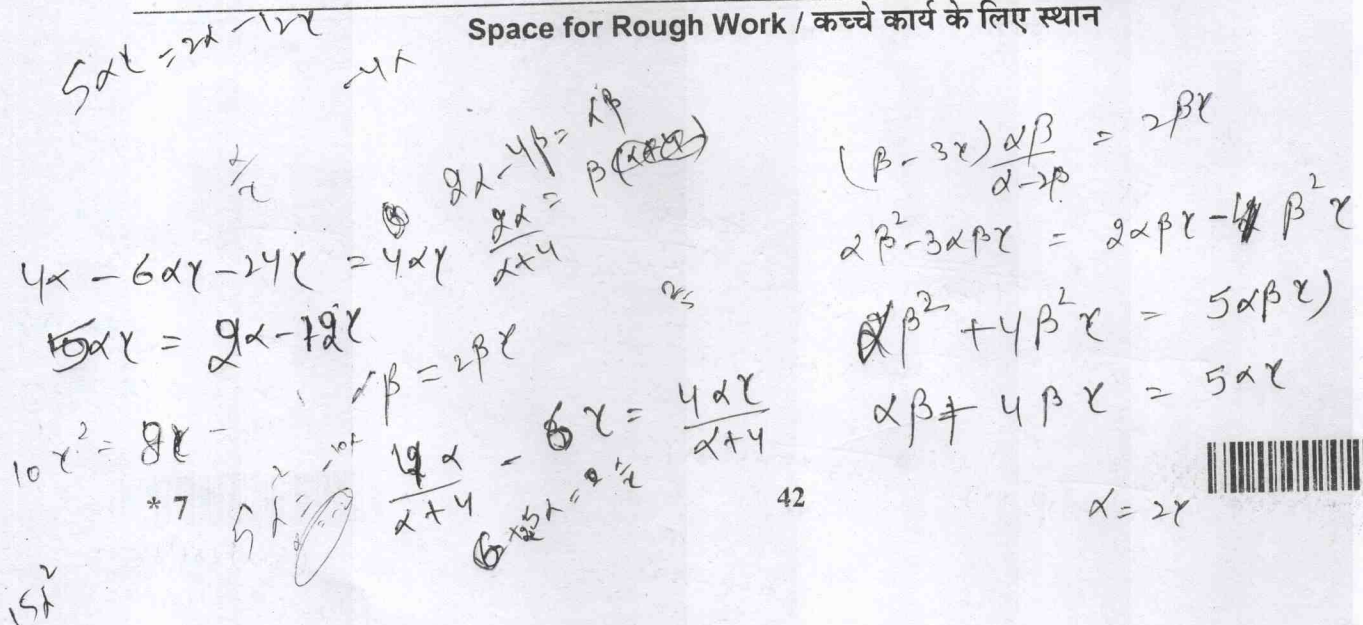 Space for Rough Work / कच्चे कार्य के लिए स्थान
5αγ = 2α - 12γ
-4α
2α - 4β = αβ
2α/(α+4) = β
4α - 6αγ - 24γ = 4αγ
5αγ = 2α - 12γ
β = 2βγ
10γ² = 8γ
4α/(α+4) - 6γ = 4αγ/(α+4)
(β - 3γ) αβ/(α-2β) = 2βγ
αβ² - 3αβγ = 2αβγ - 4β²γ
αβ² + 4β²γ = 5αβγ)
αβ + 4βγ = 5αγ
α = 2γ
* 7
42
15α²